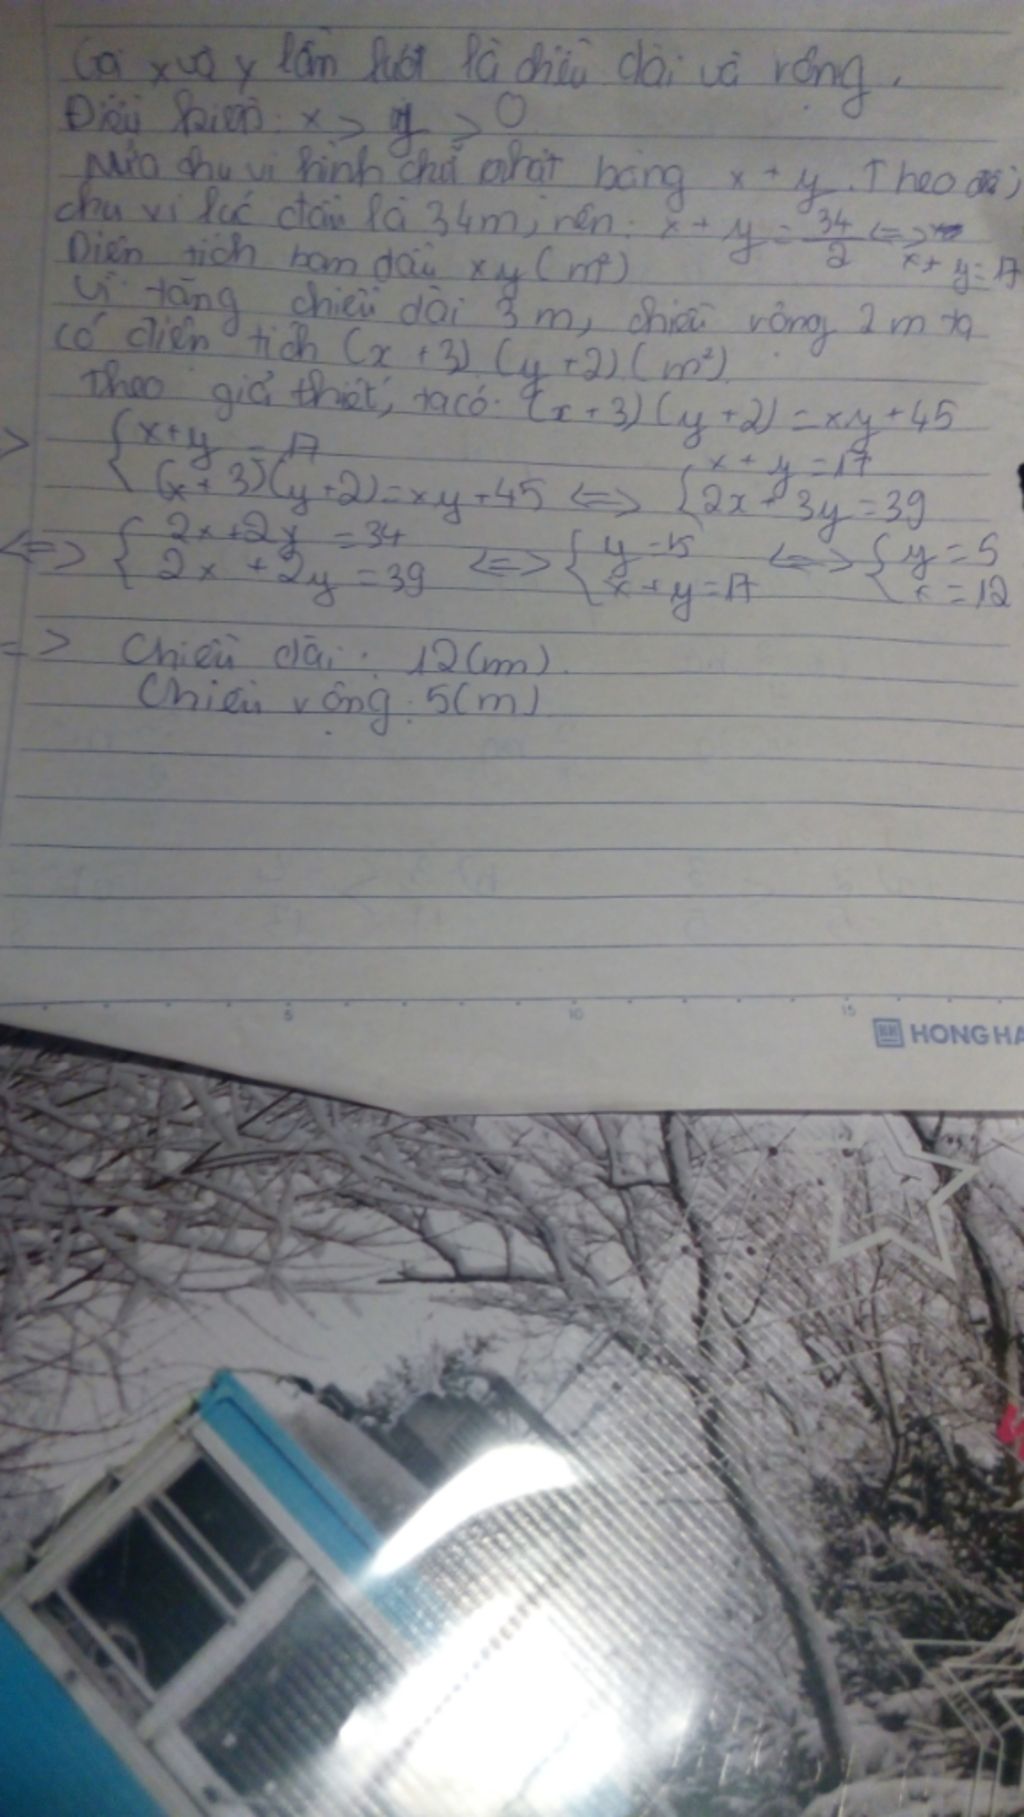 Gọi x và y lần lượt là chiều dài và rộng.
Điều kiện: x > y > 0
Nửa chu vi hình chữ nhật bằng x + y. Theo đề,
chu vi lúc đầu là 34m, nên: x + y = 34/2 <=> x + y = 17
Diện tích ban đầu xy (m²)
Vì tăng chiều dài 3 m, chiều rộng 2 m ta
có diện tích (x + 3) (y + 2) (m²)
Theo giả thiết, ta có: (x + 3) (y + 2) = xy + 45
=> { x + y = 17
(x + 3)(y + 2) = xy + 45 <=> { x + y = 17
2x + 3y = 39
<=> { 2x + 2y = 34
2x + 2y = 39 <=> { y = 5
x + y = 17 <=> { y = 5
x = 12
=> Chiều dài: 12 (m).
Chiều rộng: 5 (m)
5 10 15
HONG HA